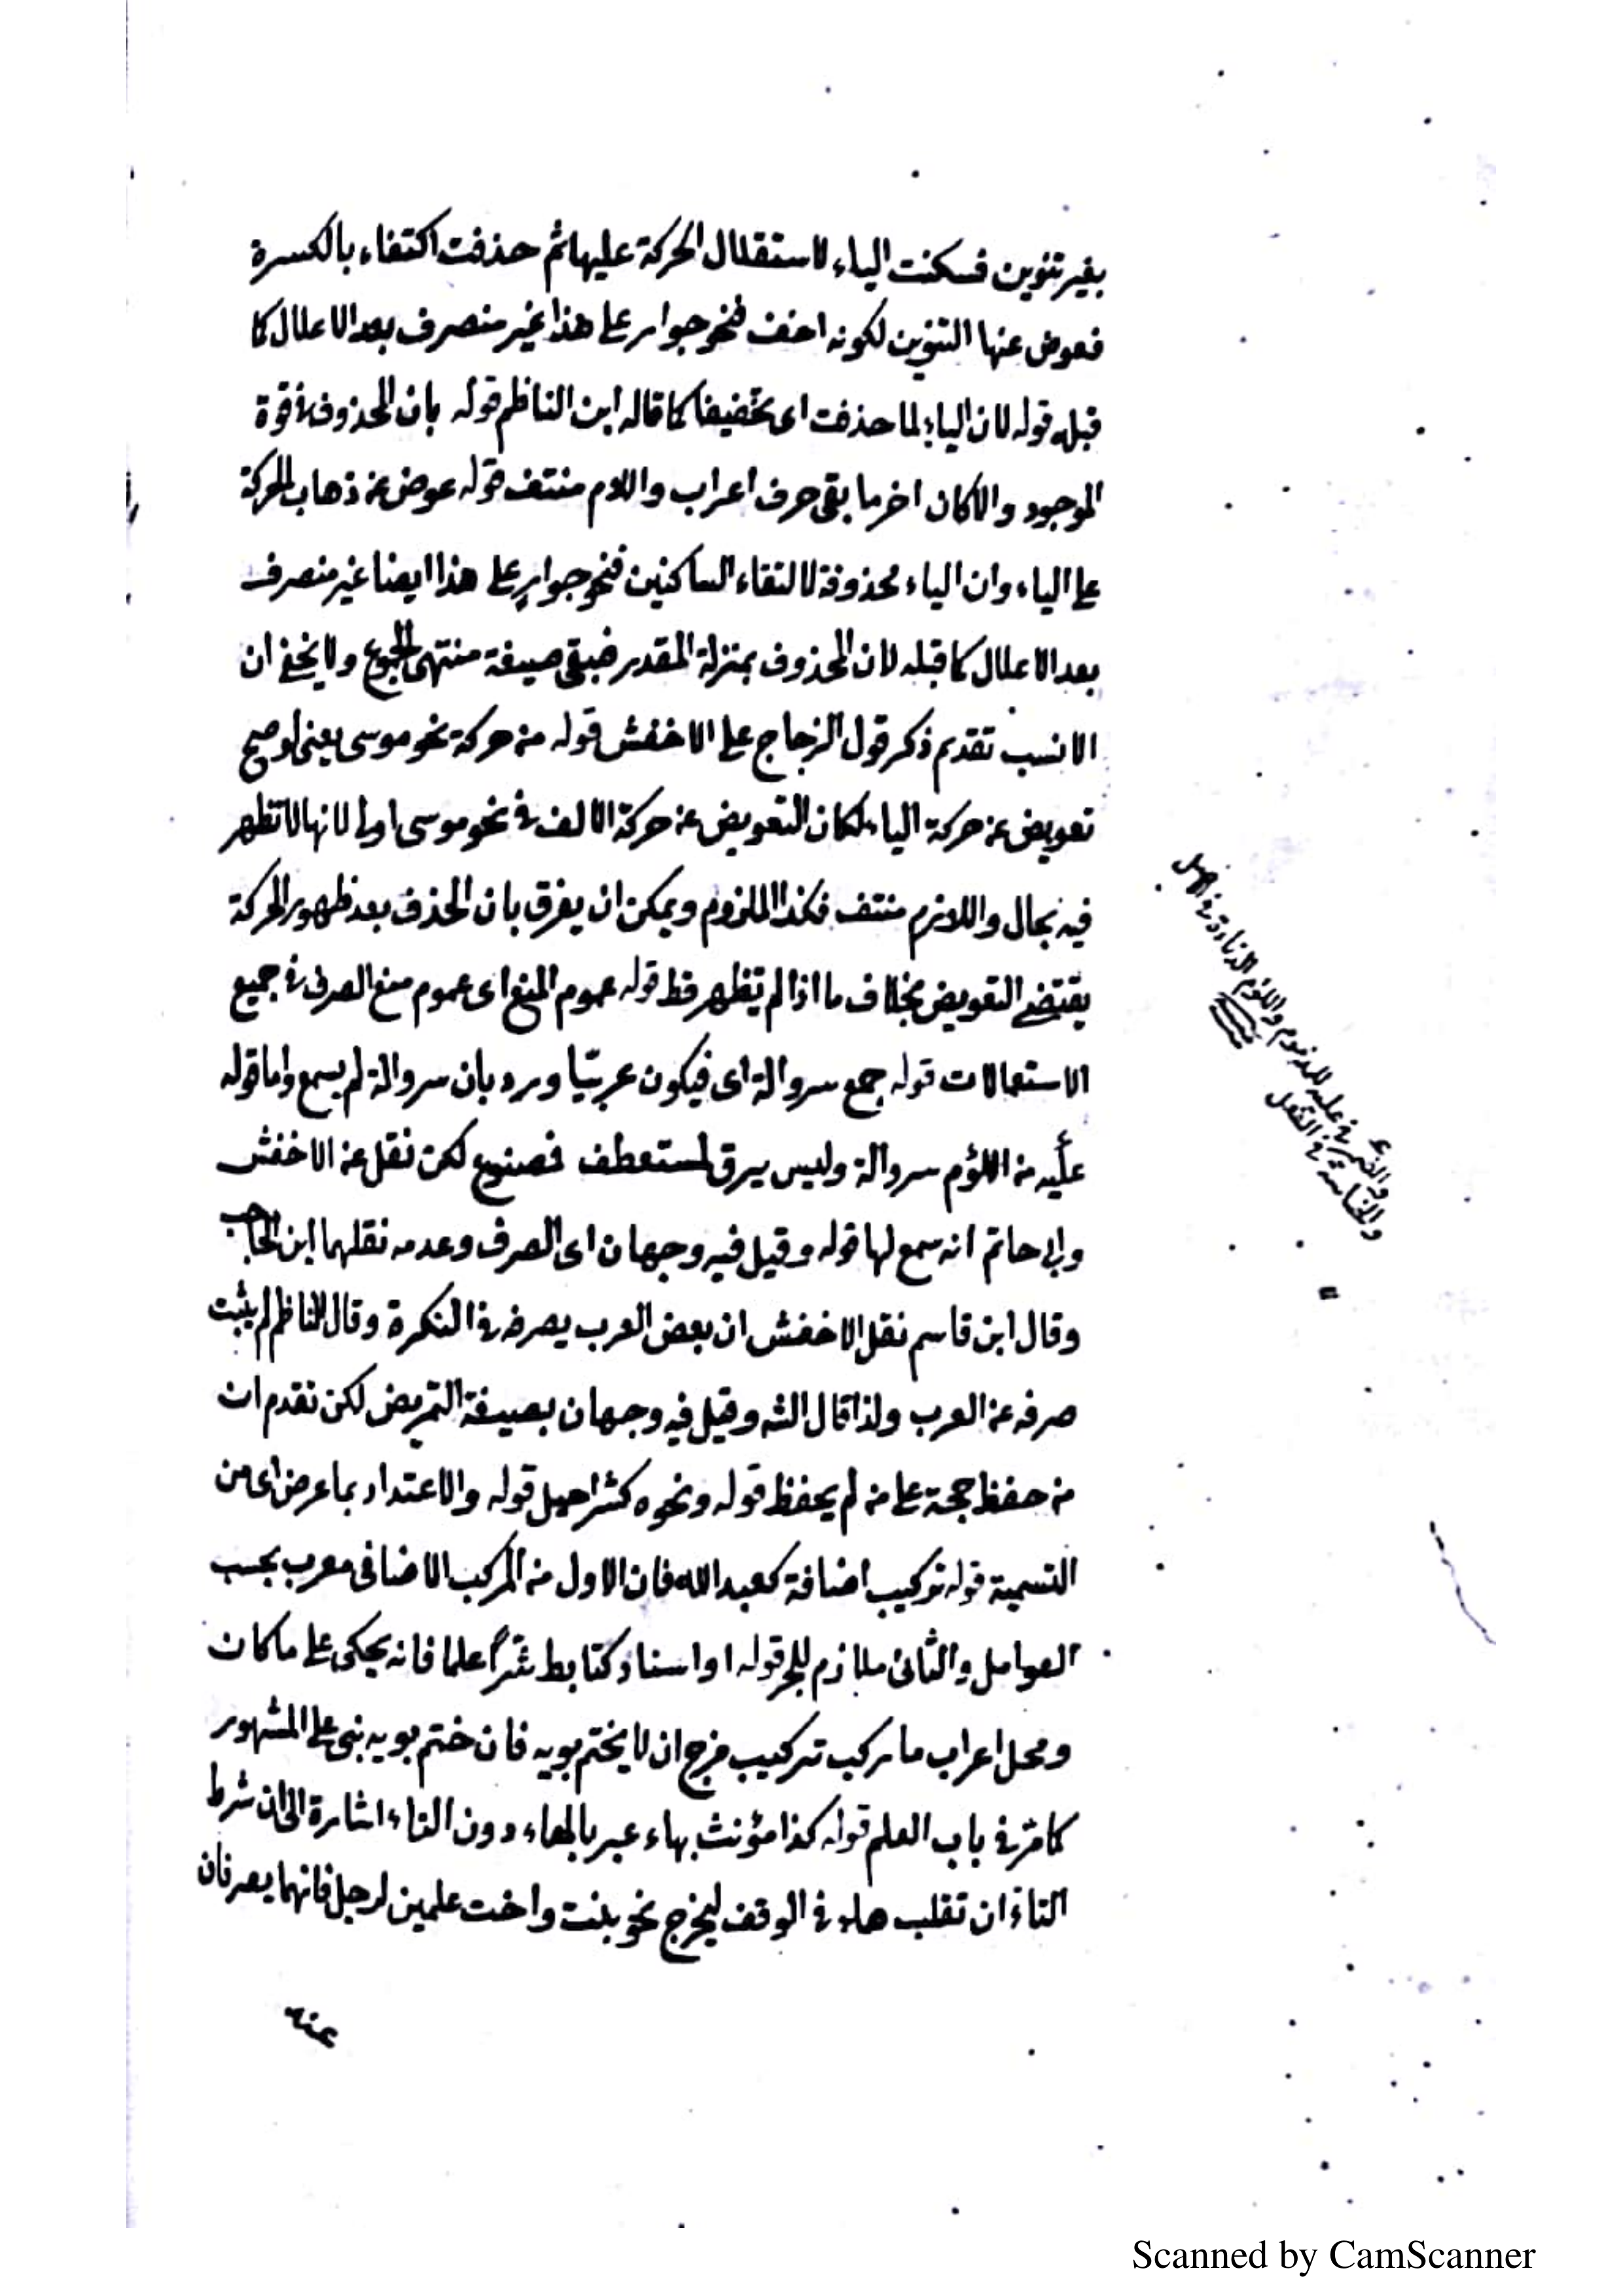 بغير تنوين فسكنت الياء لاستقلال الحركة عليها ثم حذفت اكتفاء بالكسرة
فعوض عنها التنوين لكونه اخف فنحو جوار على هذا غير منصرف بعد الاعلال كما
قبله قوله لان الياء لما حذفت اى تخفيفا كما قاله ابن الناظم قوله بان المحذوف في قوة
الموجود والا كان اخر ما بقى حرف اعراب واللام منتف قوله عوض عن ذهاب الحركة
على الياء وان الياء محذوفة لالتقاء الساكنين فنحو جوارٍ على هذا ايضا غير منصرف
بعد الاعلال كما قبله لان المحذوف بمنزلة المقدر فبقى صيغة منتهى الجموع ولا يخفى ان
الانسب تقديم ذكر قول الزجاج على الاخفش قوله من حركة نحو موسى يعنى لو صح
تعويض عن حركة الياء لكان التعويض عن حركة الالف في نحو موسى اولى لانها لا تظهر
فيه بحال واللازم منتف فكذا الملزوم ويمكن ان يفرق بان الحذف بعد ظهور الحركة
يقتضى التعويض بخلاف ما اذا لم تظهر قط قوله عموم المنع اى عموم منع الصرف في جميع
الاستعمالات قوله جمع سروالة اى فيكون عربيّا ورد بان سروالة لم يسمع واما قوله
عليه من اللؤم سروالة وليس يرق لمستعطف فمصنوع لكن نقل عن الاخفش
وابي حاتم انه سمع لها قوله وقيل فيه وجهان اى الصرف وعدمه نقلهما ابن الحاجب
وقال ابن قاسم نقل الاخفش ان بعض العرب يصرفه في النكرة وقال الناظم لم يثبت
صرفه عن العرب ولذا قال الشه وقيل فيه وجهان بصيغة التمريض لكن تقدم ان
من حفظ حجة على من لم يحفظ قوله ونحوه كشراحيل قوله والاعتداد بما عرض اى من
التسمية قوله تركيب اضافة كعبد الله فان الاول من المركب الاضافى معرب بحسب
العوامل والثانى ملازم للجر قوله او اسناد كتابط شرّاً علما فانه يحكى على ما كان
ومحل اعراب ما ركب تركيب مزج ان لا يختم بويه فان ختم بويه بنى على المشهور
كما مرّ في باب العلم قوله كذا مؤنث بهاء عبر بالهاء دون التاء اشارة الى ان شرط
التاء ان تقلب هاء في الوقف ليخرج نحو بنت واخت علمين لرجل فانهما يصرفان
والضمير في عليه للمذموم واللؤم الدناءة في الاصل
والخساسة في الفعل